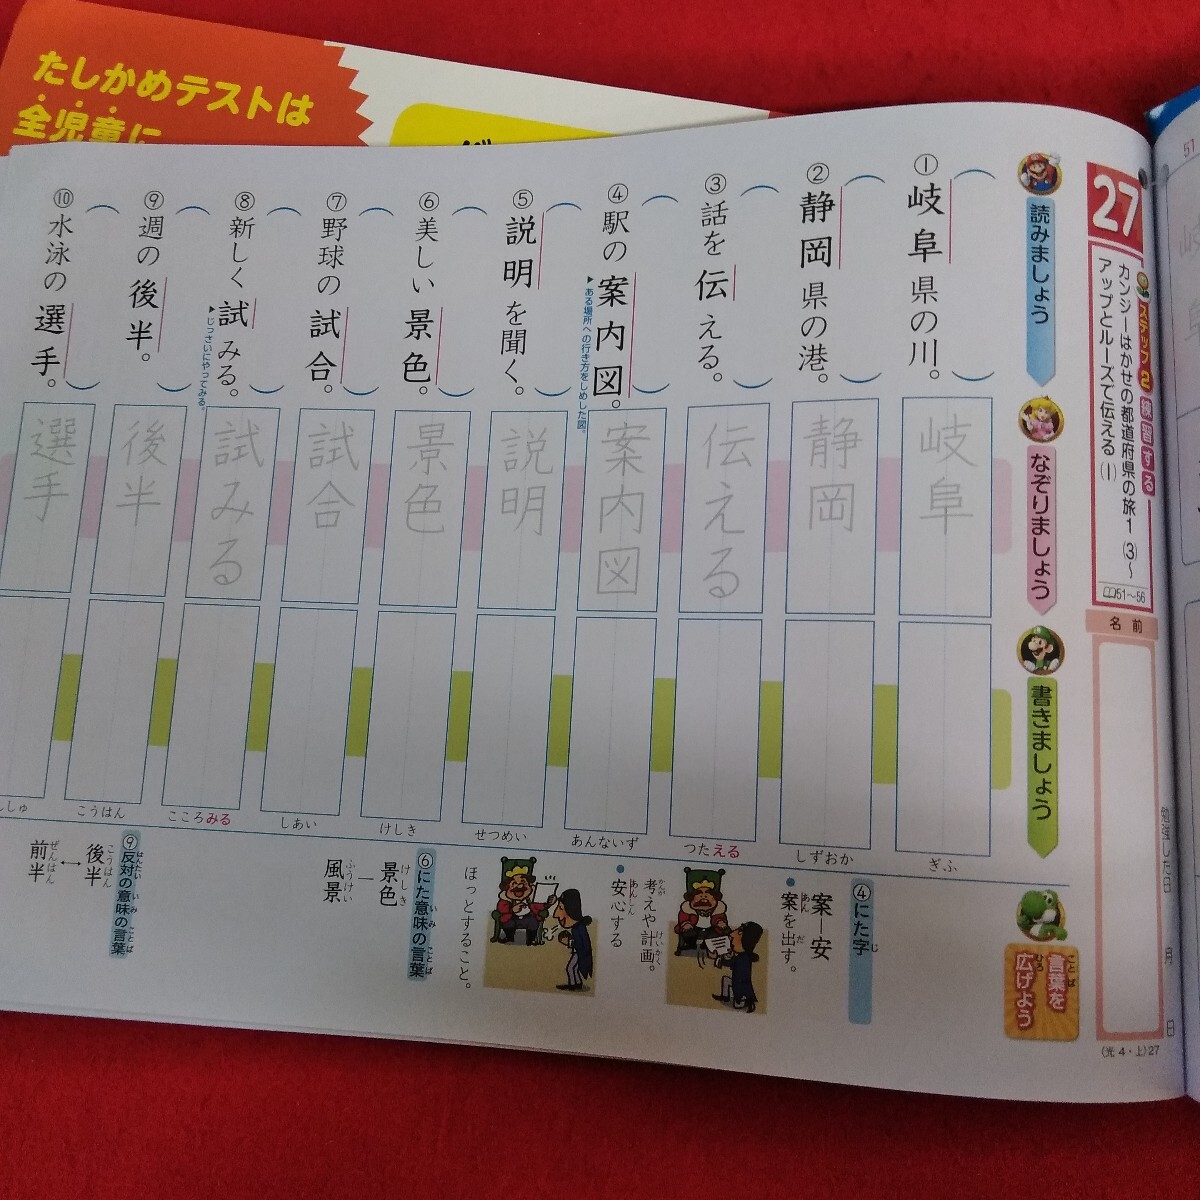 たしかめテストは
全児童に
27
ステップ2 練習する
カンジーはかせの都道府県の旅1 (3)~
アップとルーズで伝える (1)
51~56
名前
勉強した日 月 日
(光4・上)27
読みましょう
なぞりましょう
書きましょう
言葉を
ことば
広げよう
ひろ
①岐阜県の川。
②静岡県の港。
③話を伝える。
④駅の案内図。
▶ある場所への行き方をしめした図。
⑤説明を聞く。
⑥美しい景色。
⑦野球の試合。
⑧新しく試みる。
▶じっさいにやってみる。
⑨週の後半。
⑩水泳の選手。
岐阜
静岡
伝える
案内図
説明
景色
試合
試みる
後半
選手
ぎふ
しずおか
つたえる
あんないず
せつめい
けしき
しあい
こころみる
こうはん
しゅ
④にた字
じ
案―安
・案を出す。
あん だ
考えや計画。
かんが けいかく
・安心する
あんしん
ほっとすること。
⑥にた意味の言葉
いみ ことば
景色―風景
けしき ふうけい
⑨反対の意味の言葉
はんたい いみ ことば
後半↔前半
こうはん ぜんはん
51